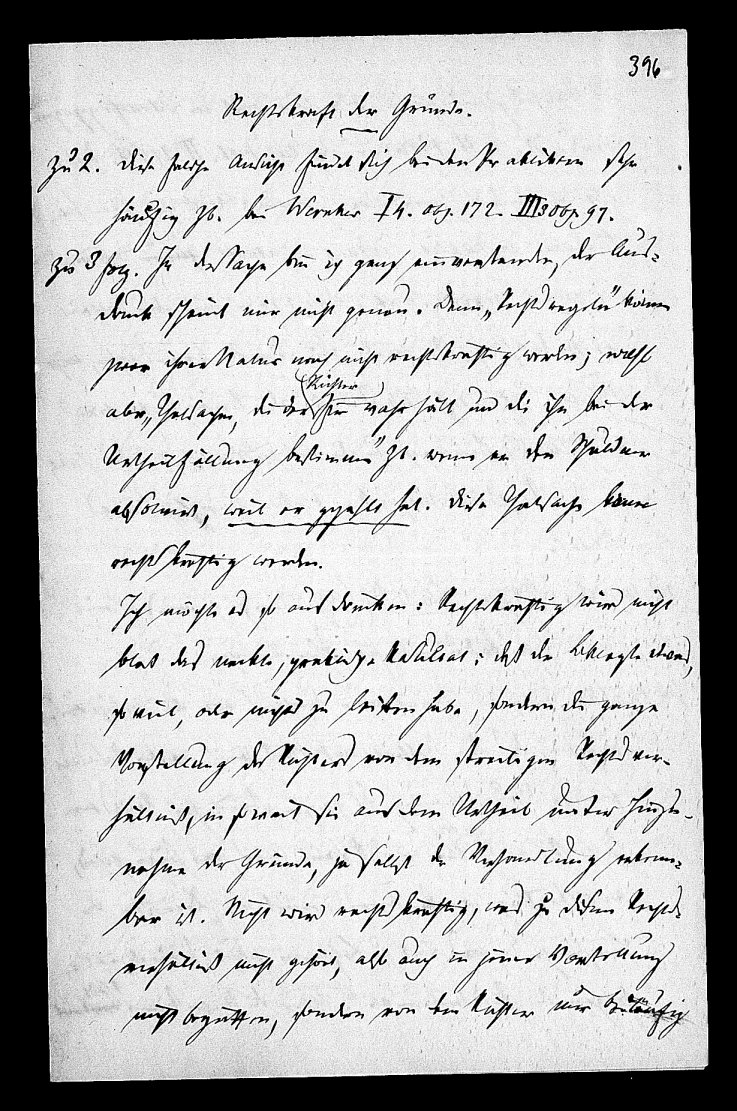 396
Rechtskraft der Gründe.
Zu 2. Diese falsche Ansicht findet sich bei den Praktikern sehr
häufig zb. bei Wernher I 4. obs. 172. III 3 obs. 97.
Zu 3 folg. In der Sache bin ich ganz einverstanden, der Aus-
druck scheint mir nicht genau. Denn „Rechtsregeln" können
zwar ihrer Natur nach nicht rechtskräftig werden; wohl
aber „Thatsachen, die der Richter für wahr hält und die ihn bei der
Urtheilsfällung bestimmen" zb. wenn er den Schuldner
absolvirt, weil er gezahlt hat. Diese Thatsache kann
rechtskräftig werden.
Ich möchte es so ausdrücken: Rechtskräftig wird nicht
blos das nackte, Resultat: daß der Beklagte etwas,
so viel, oder nichts zu leisten habe, sondern die ganze
Vorstellung des Richters von dem streitigen Rechtsver-
hältniß, in soweit sie aus dem Urtheil unter Hinzu-
nahme der Gründe, ja selbst der Verhandlung erkenn-
bar ist. Nicht wird rechtskräftig, was zu diesem Rechts-
verhältniß nicht gehört, also auch in jener Vorstellung
nicht begriffen, sondern von dem Richter nur beiläufig